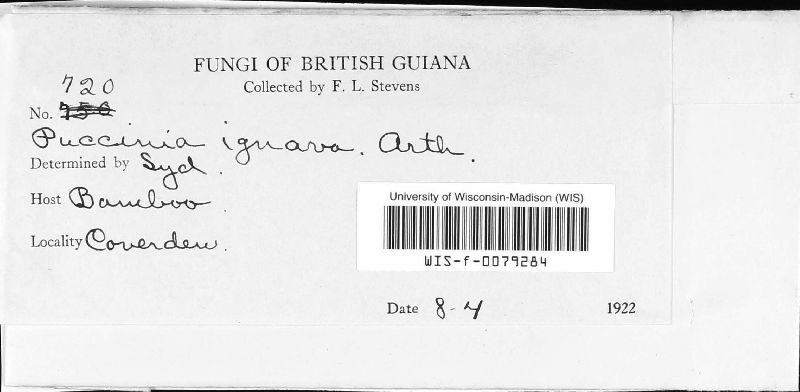 FUNGI OF BRITISH GUIANA
Collected by F. L. Stevens
720
No. 750
Puccinia ignava. Arth.
Determined by Syd.
Host Bamboo.
Locality Coverden.
University of Wisconsin-Madison (WIS)
WIS-f-0079284
Date 8-4 1922